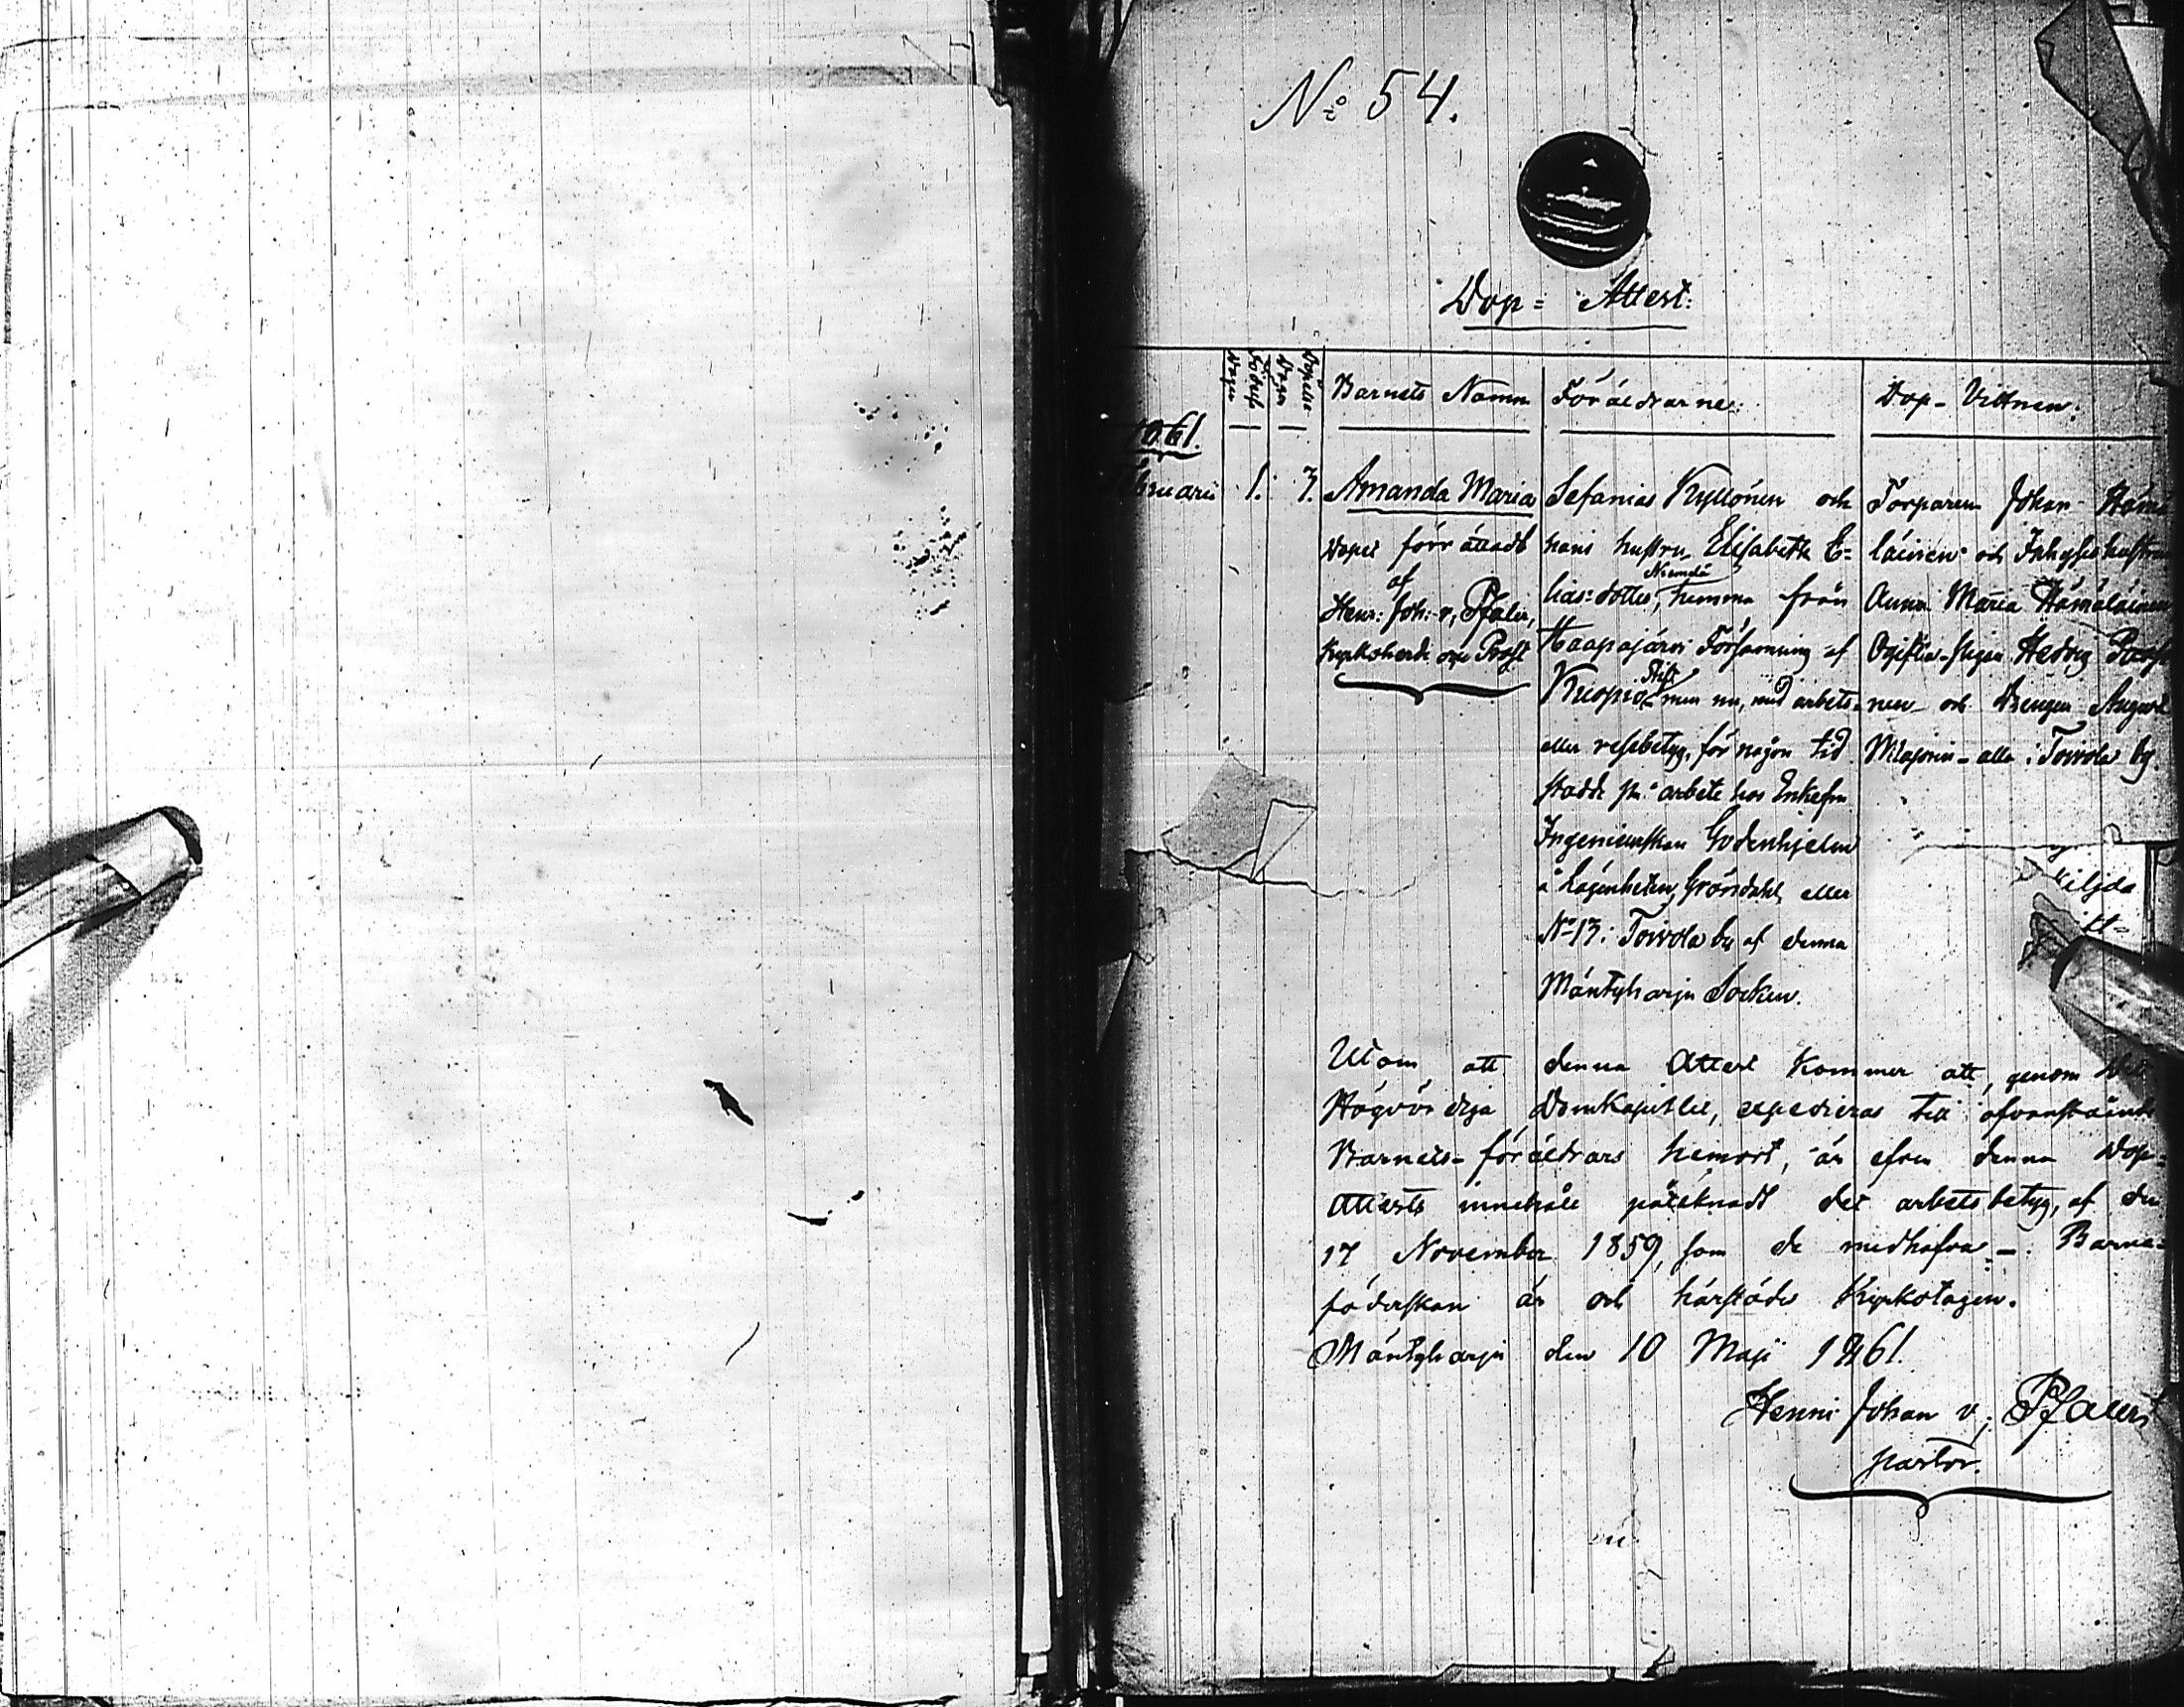 No 54.
Dop= Attest.
Födelse Dagen
Döpelse Dagen
Barnets Namn
Föräldrarne:
Dop-Vittnen:
1861.
Februarii 1. 7.
Amanda Maria
Dopet förrättadt
af
Henr: Joh: v. Pfaler,
Kyrkoherde och Prost
Sefanias Kyllönen och
hans hustru Elisabeth E=
lias=dotter, hemma från
Haapajärvi Församning af
Kuopio Stift men nu, med arbets=
eller resebetyg, för någon tid
stadde på arbete hos Enkefru
Ingenieurskan Godenhjelm
å lägenheten Gröndahl, eller
No 13 i Toivola by af denna
Mäntyharju Socken.
Torparen Johan Hämä
läinen och Inhyses hustrun
Anna Maria Hämäläinen
Ogifta pigan Hedvig
nen och Drengen August
alla i Toivola by.
Utom att denna Attest kommer att, genom
Högvördiga Domkapitlet, expedieras till ofvanstående
Barnets föräldrars hemort, är efven denna Dop=
Attests innehåll påteknadt det arbetsbetyg, af den
17 November 1859, som de medhafva. Barna=
föderskan är och härstädes Kyrkotagen.
Mäntyharju den 10 Maji 1861.
Henric Johan v. Pfaler
pastor.